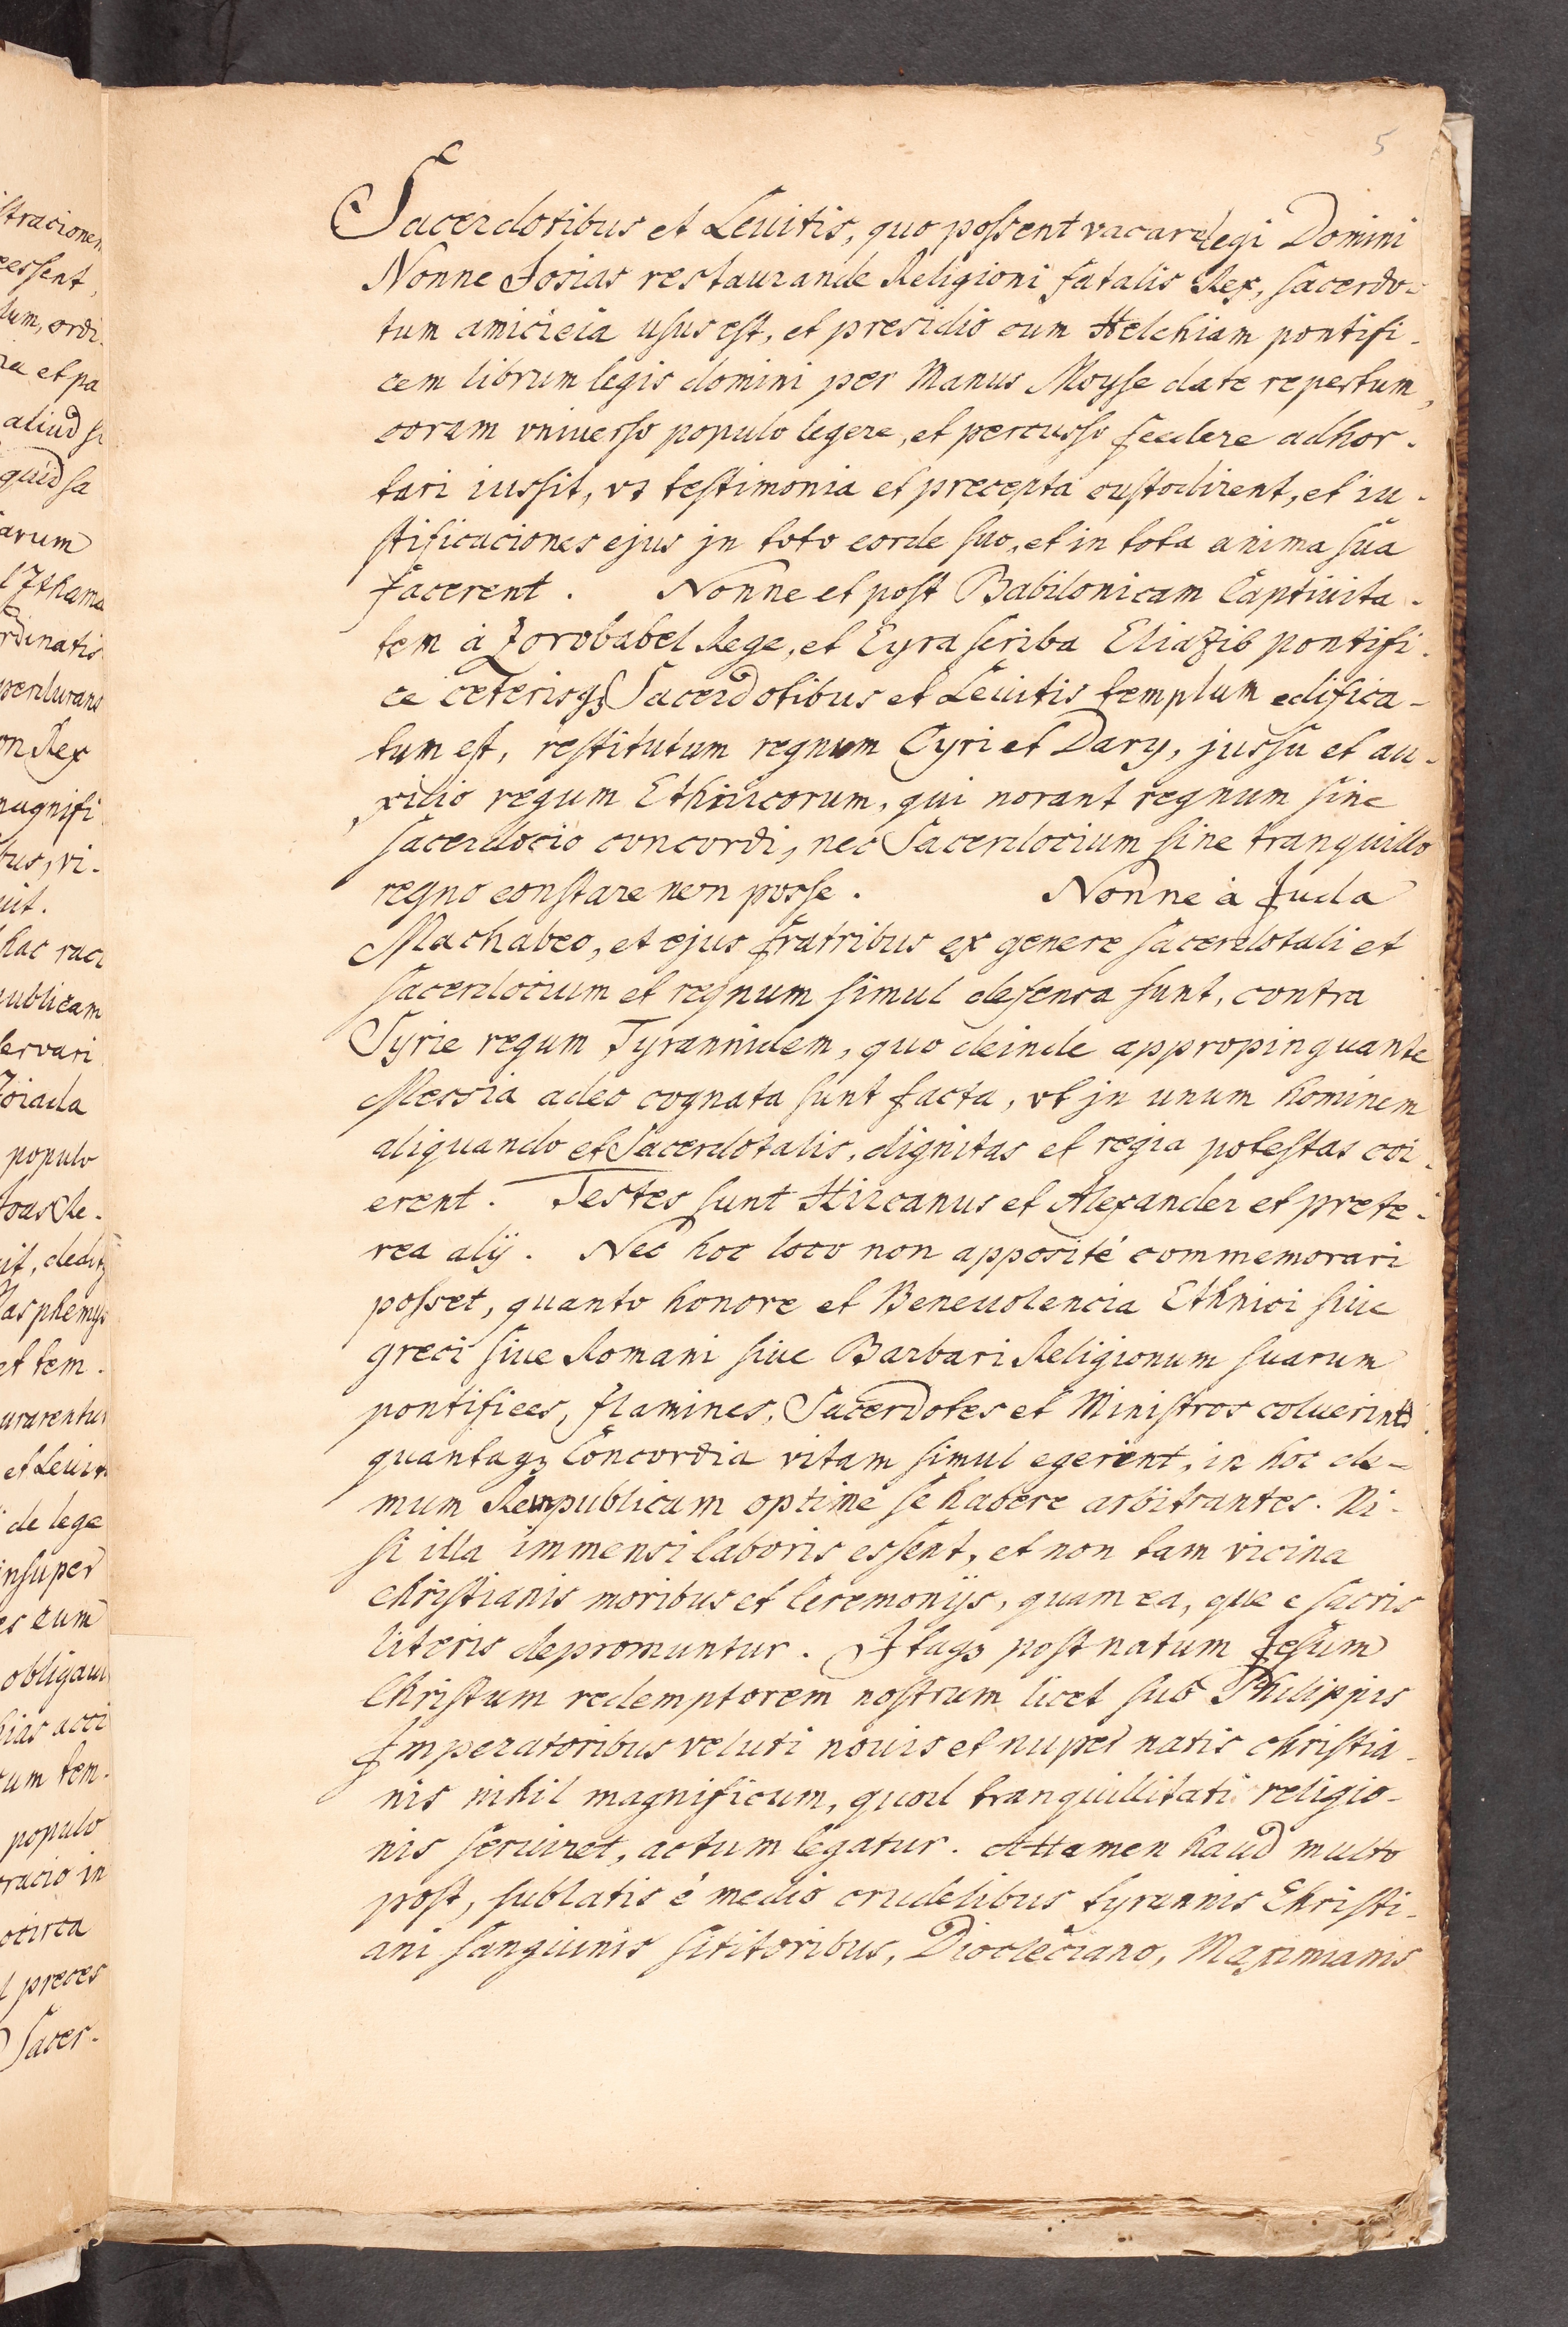 5
Sacerdotibus et Leuitis, quo possent vacare legi Domini
Nonne Josias restaurande Religioni fatalis Rex, sacerdo-
tum amicicia usus est, et presidio cum Helchiam pontifi-
cem librum legis domini per Manus Moyse date repertum,
coram vniuerso populo legere, et percusso feedere adhor-
tari iussit, vt testimonia et precepta custodirent, et iu-
stificaciones ejus jn toto corde suo, et in tota anima sua
facerent. Nonne et post Babilonicam Captiuita-
tem à Zorobabel Rege, et Eyra scriba Eliazib pontifi-
ce ceterisqꝫ Sacerdotibus et Leuitis templum edifica-
tum est, restitutum regnum Cyri et Dary, jussu et au-
xilio regum Ethnicorum, qui norant regnum sine
sacerdocio concordi, nec Sacerdocium sine tranquillo
regno constare non posse. Nonne à Juda
Machabeo, et ejus fratribus ex genere sacerdotali et
sacerdocium et regnum simul defensa sunt, contra
Syrie regum Tyrannidem, quo deinde appropinquante
Messia adeo cognata sunt facta, vt jn unum hominem
aliquando et Sacerdotalis, dignitas et regia potestas coi-
erent. Testes sunt Hircanus et Alexander et prete-
rea alij. Nec hoc loco non apposité commemorari
posset, quanto honore et Beneuolencia Ethnici siue
greci siue Romani siue Barbari Religionum suarum
pontifices, flamines, Sacerdotes et Ministros coluerint
quantaqꝫ Concordia vitam simul egerint, in hoc de-
mum Rempublicam optime se habere arbitrantes. Ni-
si illa immensi laboris essent, et non tam vicina
christianis moribus et Ceremonijs, quam ea, que e sacris
literis depromuntur. Itaqꝫ post natum Jesum
Christum redemptorem nostrum licet sub Philippis
Imperatoribus veluti nouis et nuper natis christia-
nis nihil magnificum, quod tranquillitati religio-
nis seruiret, actum legatur. Attamen haud multo
post, sublatis é medio crudelibus tyrannis Christi-
ani sanguinis sititoribus, Diocleciano, Maximianis